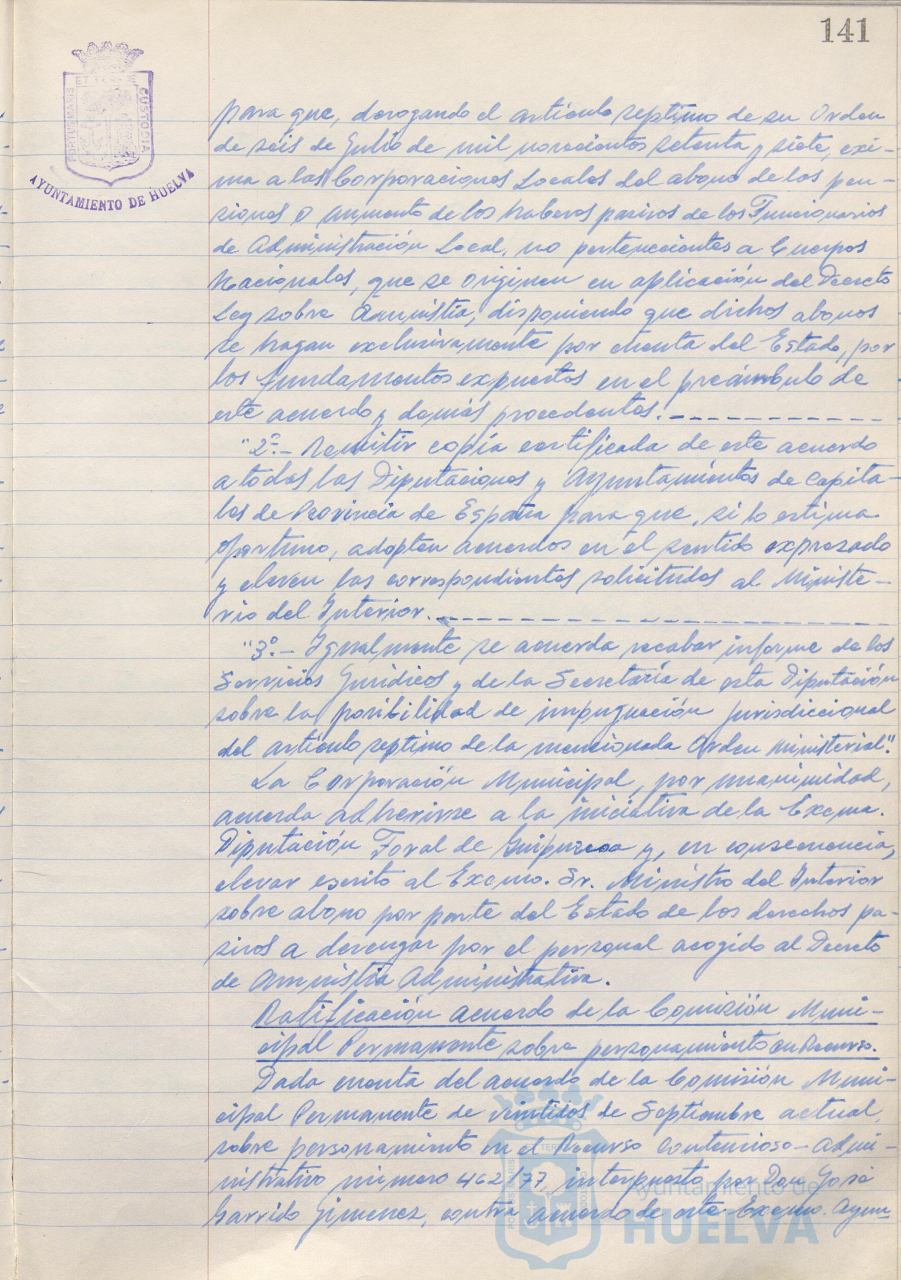 141
PORTUS MARIS ET TERRAE CUSTODIA
AYUNTAMIENTO DE HUELVA
para que, derogando el artículo septimo de su Orden
de seis de Julio de mil novecientos setenta y siete, exi-
ma a las Corporaciones Locales del abono de las pen-
siones o aumento de los haberes pasivos de los Funcionarios
de Administración Local, no pertenecientes a Cuerpos
Nacionales, que se originen en aplicación del Decreto
Ley sobre Amnistia, disponiendo que dichos abonos
se hagan exclusivamente por cuenta del Estado, por
los fundamentos expuestos en el preámbulo de
este acuerdo y demás procedentes.
"2º.- Remitir copia certificada de este acuerdo
a todas las Diputaciones y Ayuntamientos de capita-
les de Provincia de España para que, si lo estima
oportuno, adopten acuerdos en el sentido expresado
y eleven las correspondientes solicitudes al Ministe-
rio del Interior.
"3º.- Igualmente se acuerda recabar informe de los
Servicios Jurídicos y de la Secretaría de esta Diputación
sobre la posibilidad de impugnación jurisdiccional
del artículo septimo de la mencionada Orden Ministerial".
La Corporación Municipal, por unanimidad,
acuerda adherirse a la iniciativa de la Excma.
Diputación Foral de Guipuzcoa y, en consecuencia,
elevar escrito al Excmo. Sr. Ministro del Interior
sobre abono por parte del Estado de los derechos pa-
sivos a devengar por el personal acogido al Decreto
de Amnistia Administrativa.
Ratificación acuerdo de la Comisión Muni-
cipal Permanente sobre personamiento en Recurso.
Dada cuenta del acuerdo de la Comisión Muni-
cipal Permanente de veintidos de Septiembre actual,
sobre personamiento en el Recurso contencioso-admi-
nistrativo número 462/77, interpuesto por Don José
Garrido Gimenez, contra acuerdo de este Excmo. Ayun-
Ayuntamiento de
HUELVA